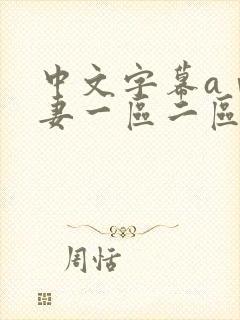 中文字幕a
妻一區二區
周恬